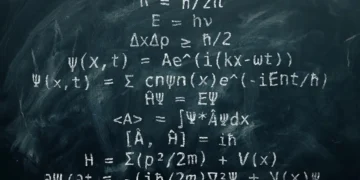 E = hν
ΔxΔp ≥ ℏ/2
ψ(x,t) = Ae^(i(kx-wt))
Ψ(x,t) = Σ cnψn(x)e^(-iEnt/ℏ)
ĤΨ = EΨ
<A> = ∫Ψ*ÂΨdx
[Â, Ĥ] = iℏ
H = Σ(p²/2m) + V(x)